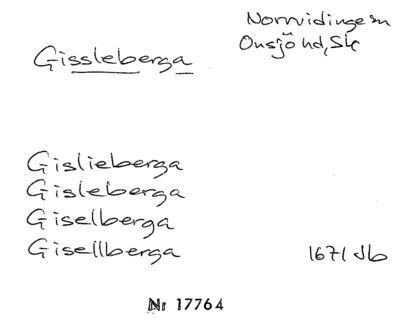 Norrvidinge sn
Onsjö hd, Sk
Gissleberga
Gislieberga
Gisleberga
Giselberga
Gisellberga
1671 Jb
Nr 17764